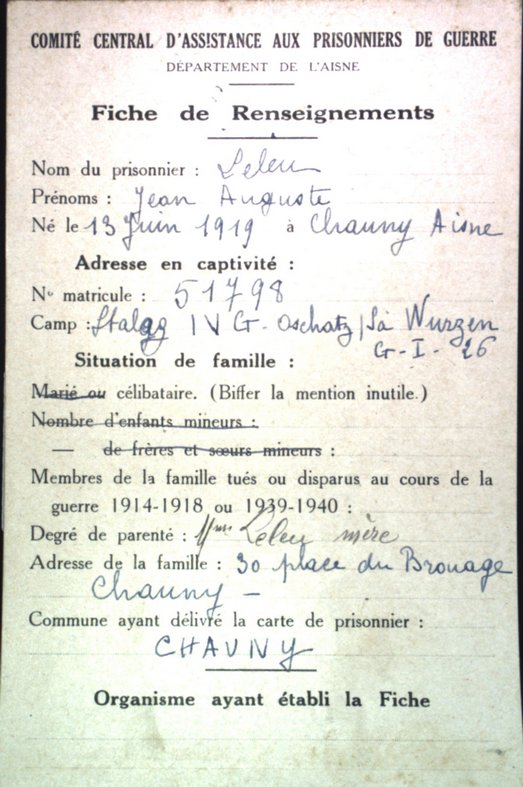 COMITÉ CENTRAL D'ASSISTANCE AUX PRISONNIERS DE GUERRE
DÉPARTEMENT DE L'AISNE
Fiche de Renseignements
Nom du prisonnier : Leleu
Prénoms : Jean Auguste
Né le 13 Juin 1919 à Chauny Aisne
Adresse en captivité :
No matricule : 51798
Camp : Stalag IV G. Oschatz / Sa Wurzen
G-I-26
Situation de famille :
Marié ou célibataire. (Biffer la mention inutile.)
Nombre d'enfants mineurs :
— de frères et sœurs mineurs :
Membres de la famille tués ou disparus au cours de la
guerre 1914-1918 ou 1939-1940 :
Degré de parenté : Mme Leleu mère
Adresse de la famille : 30 place du Brouage
Chauny -
Commune ayant délivré la carte de prisonnier :
CHAUNY
Organisme ayant établi la Fiche